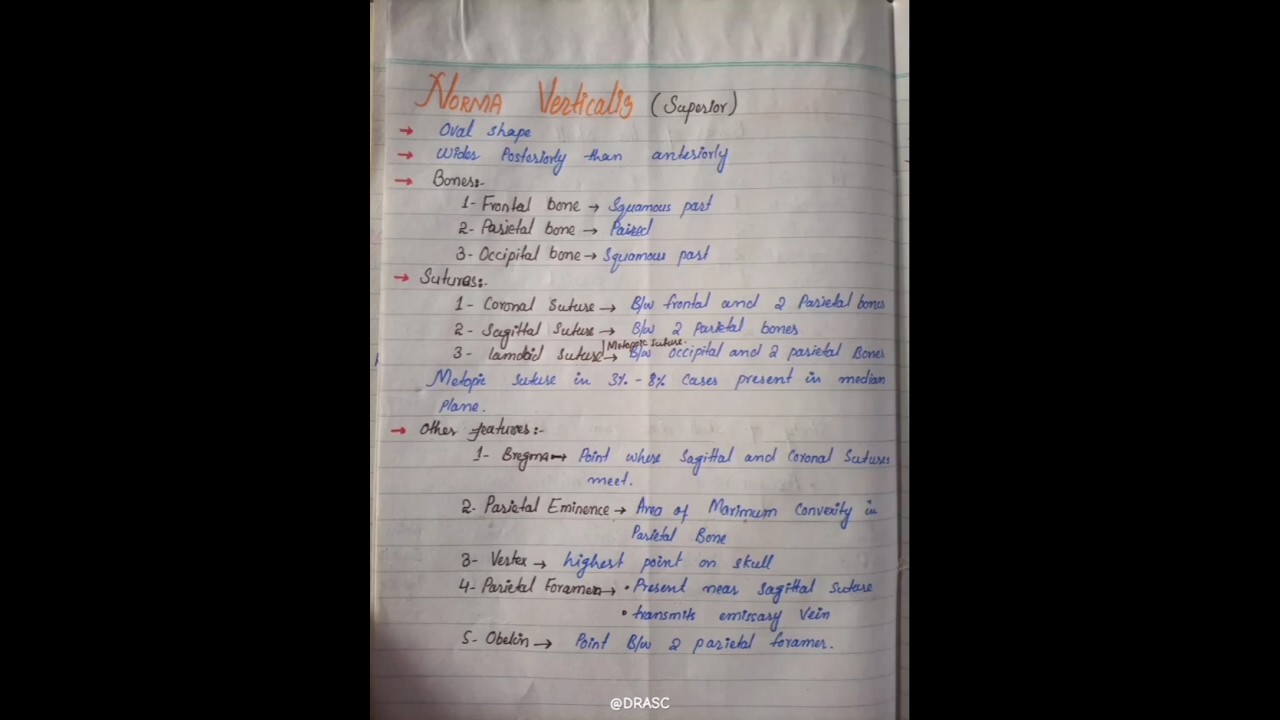 NORMA Verticalis (Superior)
→ Oval shape
→ Wider Posteriorly than anteriorly
→ Bones:-
1- Frontal bone → Squamous part
2- Parietal bone → Paired
3- Occipital bone → Squamous part
→ Sutures:-
1- Coronal Suture → B/w frontal and 2 Parietal bones
2- Sagittal Suture → B/w 2 Parietal bones
Metopic suture.
3- lamdoid suture → B/w occipital and 2 parietal Bones
Metopic suture in 3% - 8% cases present in median
plane.
→ Other features:-
1- Bregma → Point where Sagittal and Coronal Sutures
meet.
2- Parietal Eminence → Area of Maximum Convexity in
Parietal Bone
3- Vertex → highest point on skull
4- Parietal Foramen → • Present near Sagittal suture
• transmits emissary Vein
5- Obelion → Point B/w 2 parietal foramen.
@DRASC